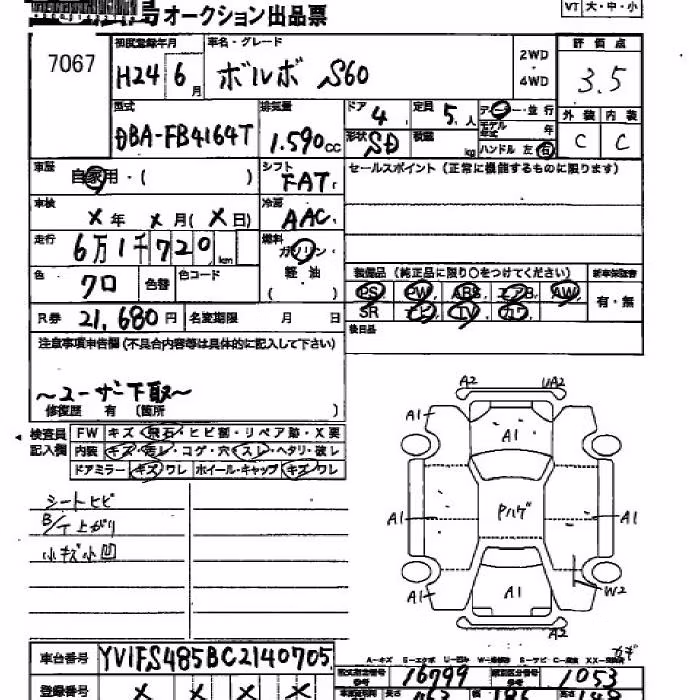 オークション出品票
VT 大・中・小
7067
初度登録年月
H24 6月
車名・グレード
ボルボ S60
2WD
・
4WD
評価点
3.5
型式
DBA-FB4164T
排気量
1.590 cc
ドア 4
定員 5人
ディーラー・並行
形状 SD
積載 kg
モデル年式 年
ハンドル 左 右
外装 内装
C C
車歴
自家用・( )
シフト
FAT
セールスポイント(正常に機能するものに限ります)
車検
X年 X月(X日)
冷房
AAC
走行
6万1千720km
燃料
ガソリン・
軽油
( )
色
クロ
色替
色コード
装備品(純正品に限り○をつけてください)
新車保証書
PS PW ABS エアB AW
SR ナビ TV カワ
有・無
R券 21,680円
名変期限 月 日
後日品
注意事項申告欄(不具合内容等は具体的に記入して下さい)
〜ユーザー下取〜
修復歴 有 (箇所 )
検査員
記入欄
FW キズ・飛石・ヒビ割・リペア跡・X要
内装 キズ・汚レ・コゲ・穴・スレ・ヘタリ・破レ
ドアミラー キズ・ワレ ホイール・キャップ キズ・ワレ
シートヒビ
B/T上がり
小キズ小凹
A2 UA2
A1 A1 A1
A1 Pハゲ A1
A1 A1 W2
A2
車台番号 YV1FS485BC2140705
登録番号 X X X X
16799
1053